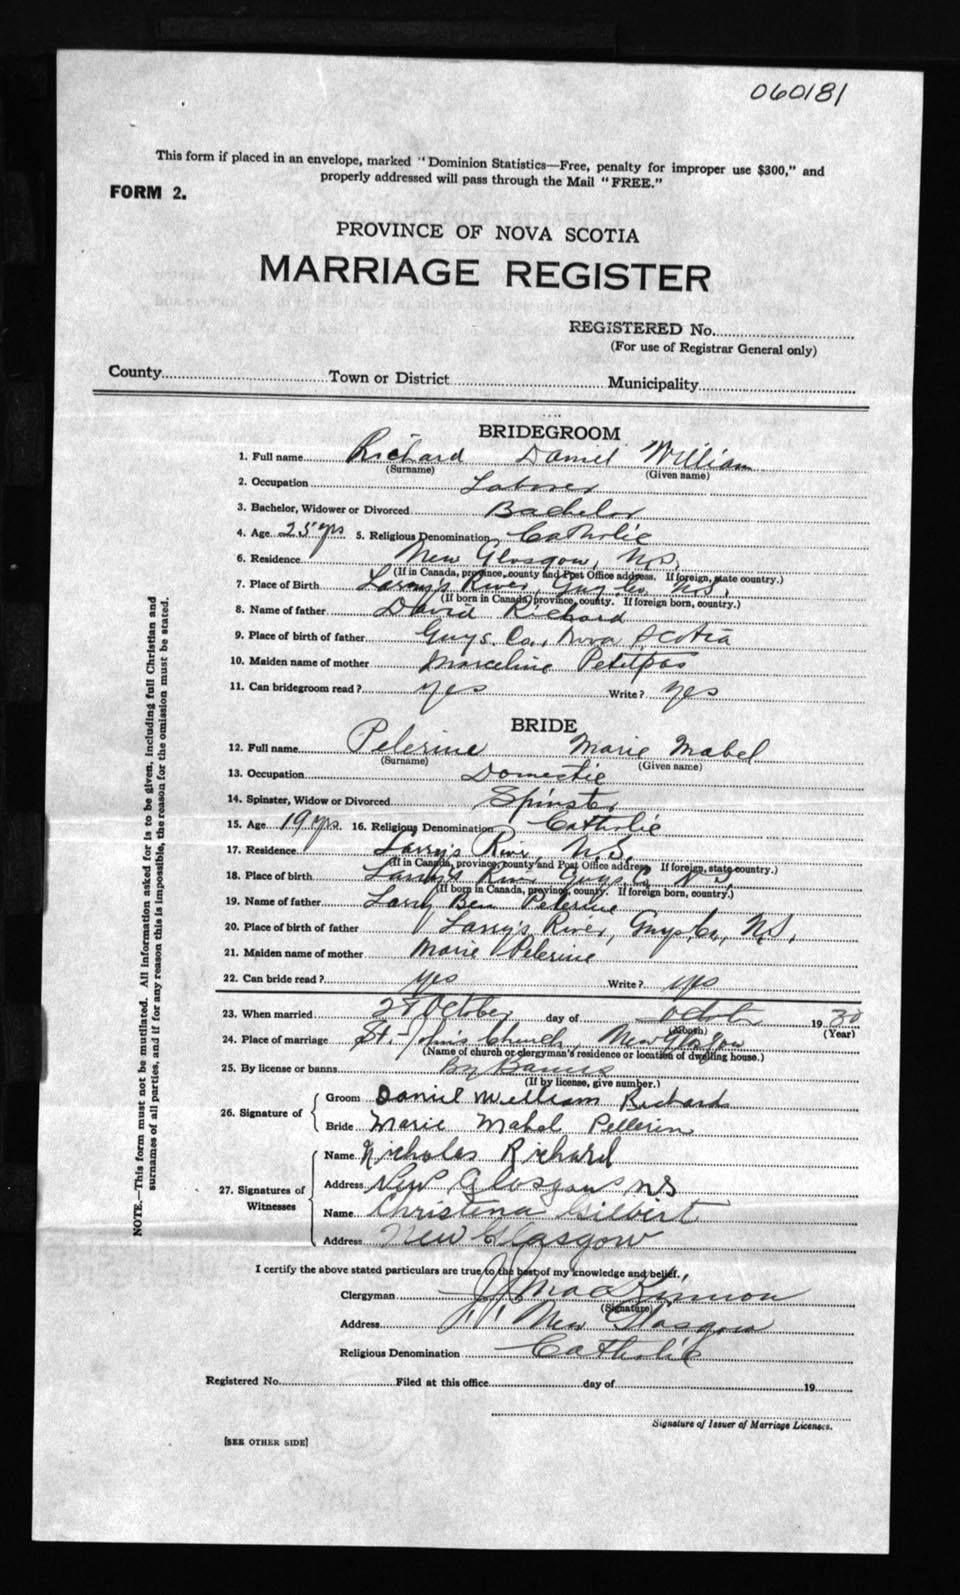 060181
This form if placed in an envelope, marked "Dominion Statistics—Free, penalty for improper use $300," and
properly addressed will pass through the Mail "FREE."
FORM 2.
PROVINCE OF NOVA SCOTIA
MARRIAGE REGISTER
REGISTERED No.
(For use of Registrar General only)
County Town or District Municipality
BRIDEGROOM
1. Full name Richard Daniel William
(Surname) (Given name)
2. Occupation Laborer
3. Bachelor, Widower or Divorced Bachelor
4. Age 25 yrs 5. Religious Denomination Catholic
6. Residence New Glasgow, N.S.
(If in Canada, province, county and Post Office address. If foreign, state country.)
7. Place of Birth Larry's River, Guy. Co. N.S.
(If born in Canada, province, county. If foreign born, country.)
8. Name of father David Richard
9. Place of birth of father Guys. Co., Nova Scotia
10. Maiden name of mother Marceline Petitpas
11. Can bridegroom read? yes Write? yes
BRIDE
12. Full name Pelerine Marie Mabel
(Surname) (Given name)
13. Occupation Domestic
14. Spinster, Widow or Divorced Spinster
15. Age 19 yrs. 16. Religious Denomination Catholic
17. Residence Larry's River, N.S.
(If in Canada, province, county and Post Office address If foreign, state country.)
18. Place of birth Larry's River Guys. Co N.S.
(If born in Canada, province, county. If foreign born, country.)
19. Name of father Larry Ben Pelerine
20. Place of birth of father Larry's River, Guys. Co., N.S.
21. Maiden name of mother Marie Pelerine
22. Can bride read? yes Write? yes
23. When married October day of 19 30
(Month) (Year)
24. Place of marriage St. John's Church, New Glasgow
(Name of church or clergyman's residence or location of dwelling house.)
25. By license or banns By Banns
(If by license, give number.)
26. Signature of Groom Daniel William Richard
Bride Marie Mabel Pellerin
27. Signatures of Witnesses Name Nicholas Richard
Address New Glasgow N S
Name Christena Gilbert
Address New Glasgow
I certify the above stated particulars are true to the best of my knowledge and belief.
Clergyman MacKinnon
(Signature)
Address New Glasgow
Religious Denomination Catholic
Registered No. Filed at this office day of 19
Signature of Issuer of Marriage Licenses.
[SEE OTHER SIDE]
NOTE.—This form must not be mutilated. All information asked for is to be given, including full Christian and
surnames of all parties, and if for any reason this is impossible, the reason for the omission must be stated.